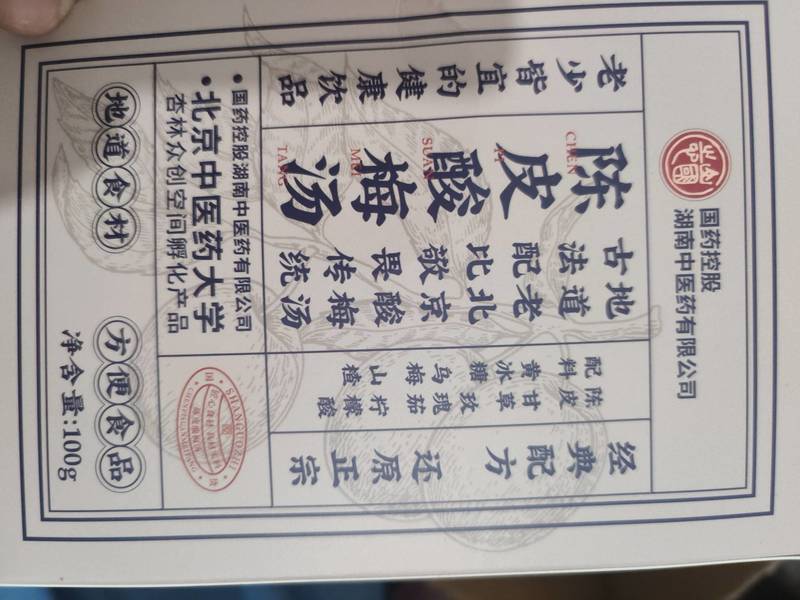 国药控股
湖南中医药有限公司
老少皆宜的健康饮品
陈皮酸梅汤
CHEN PI SUAN MEI TANG
古法配比敬畏传统
地道老北京酸梅汤
配料 黄冰糖 乌梅 山楂
陈皮 甘草 玫瑰茄 柠檬酸
经典配方 还原正宗
•国药控股湖南中医药有限公司
•北京中医药大学
杏林众创空间孵化产品
地道食材 方便食品
净含量:100g